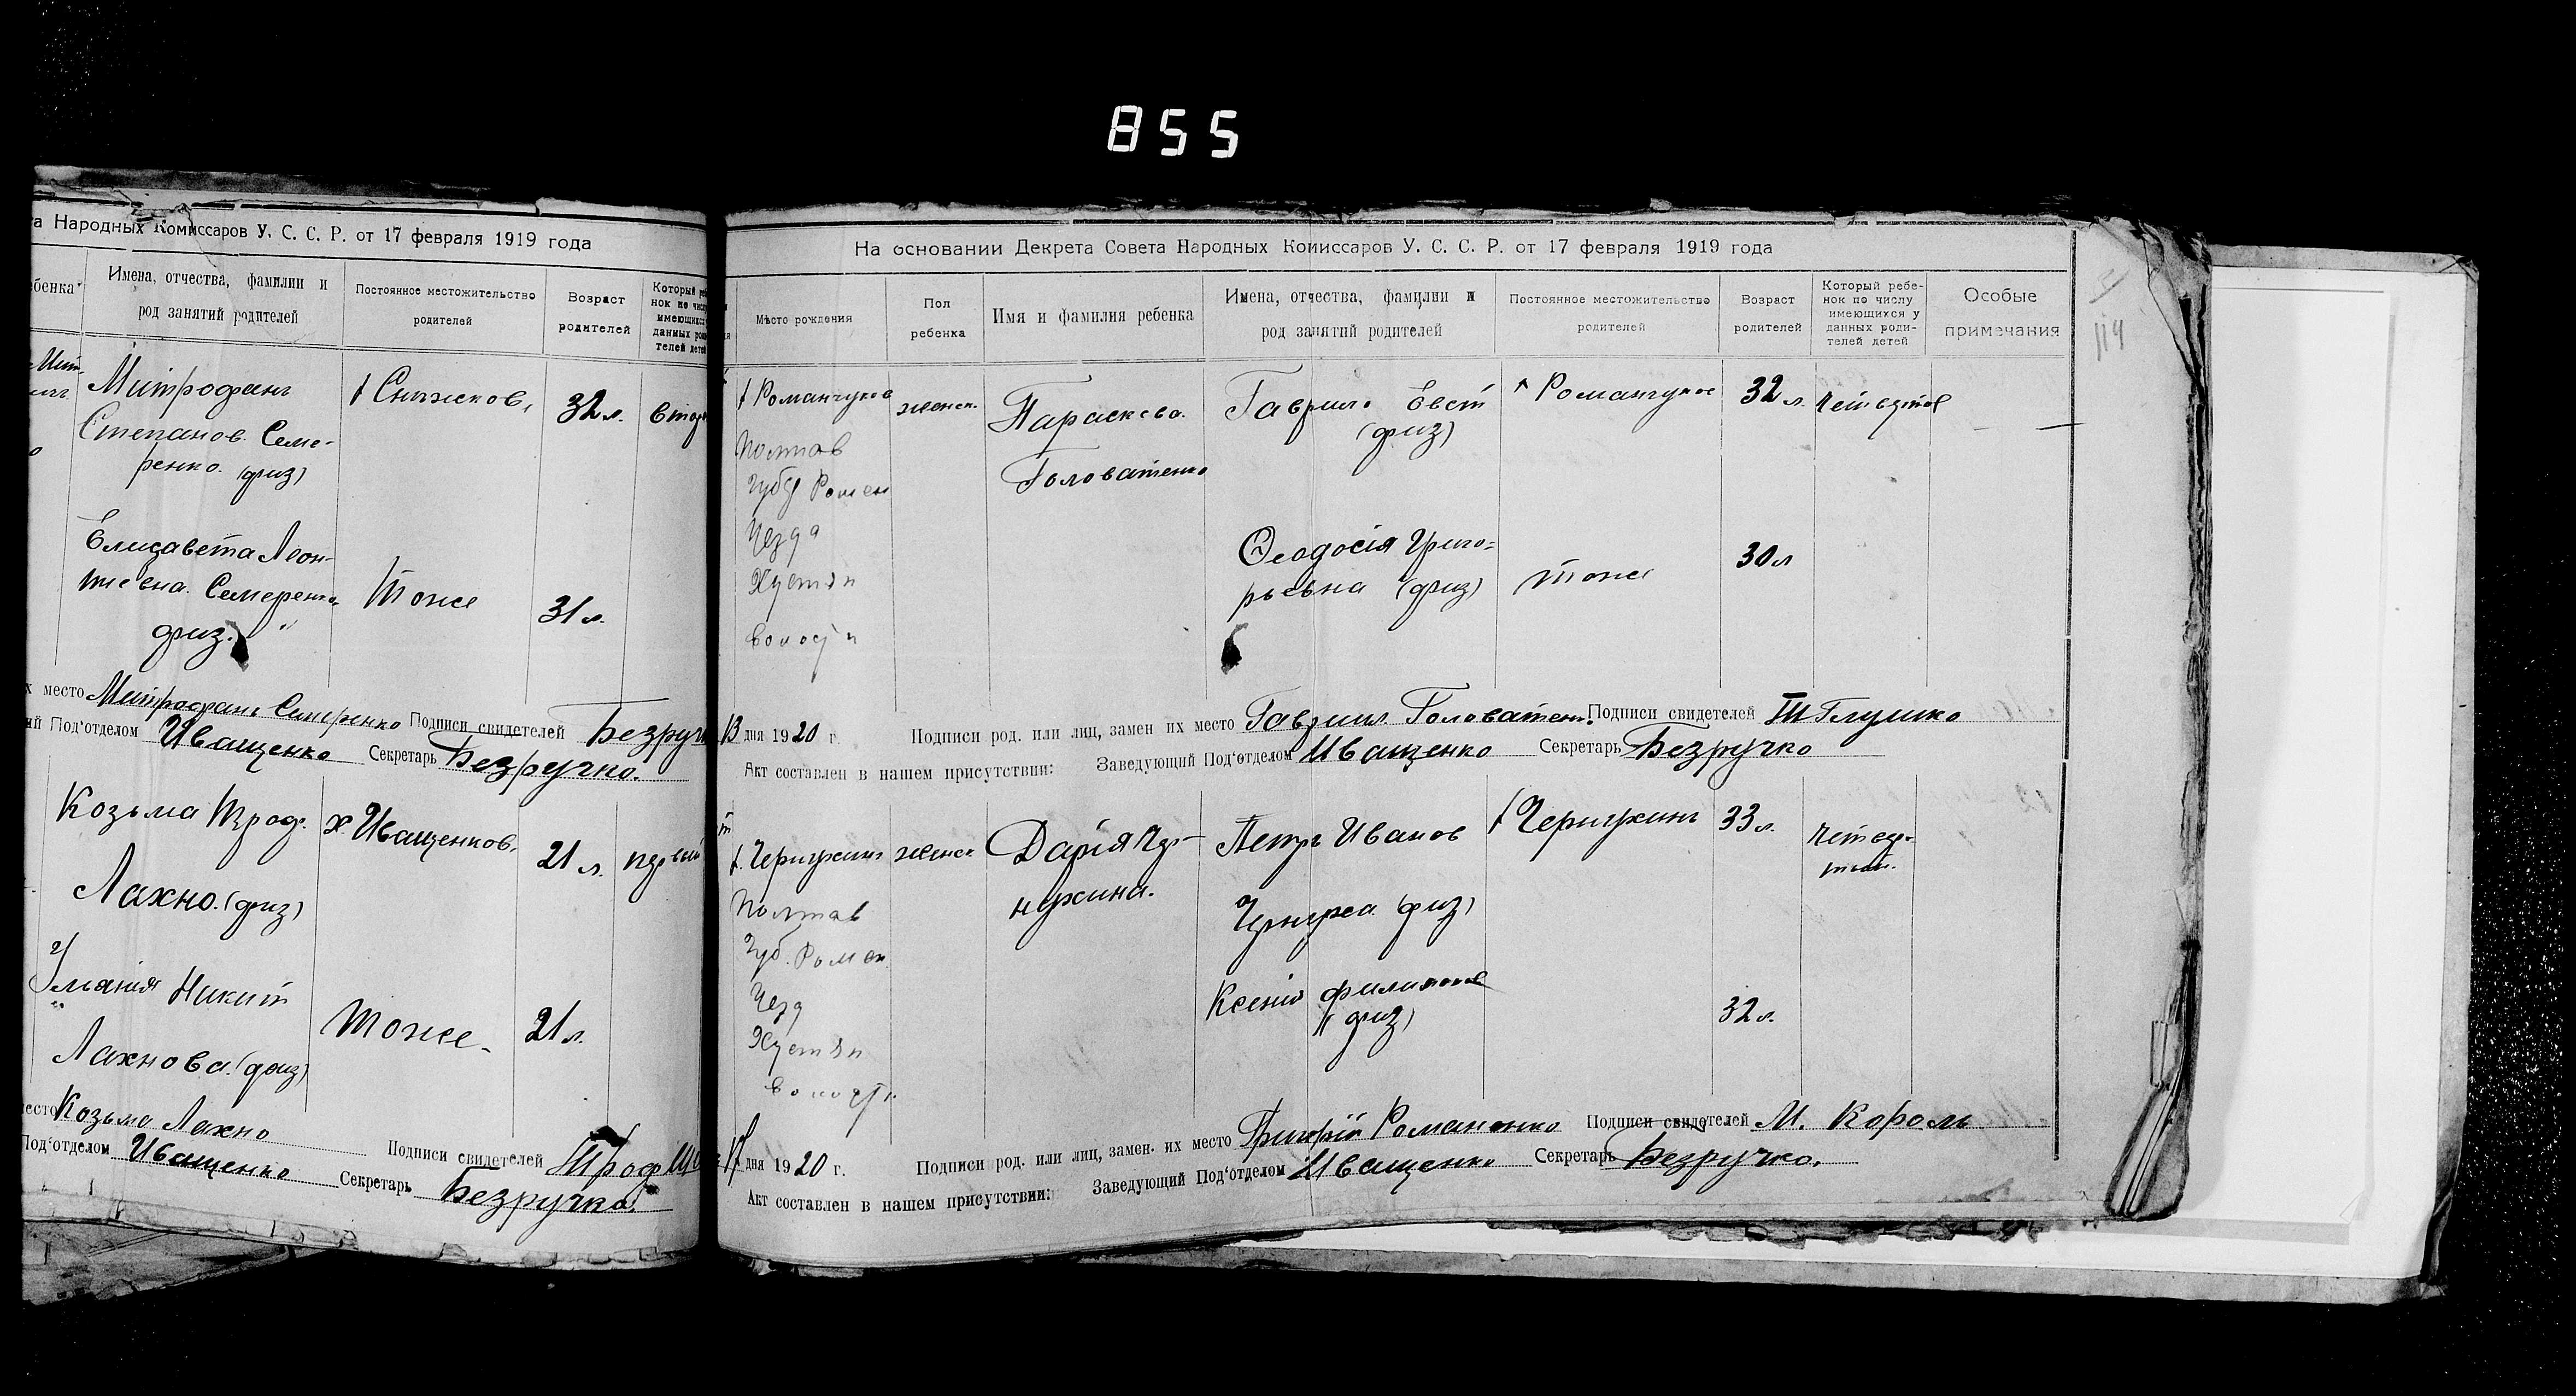 855
та Народных Комиссаров У. С. С. Р. от 17 февраля 1919 года
ебенка
Имена, отчества, фамилии и
род занятий родителей
Постоянное местожительство
родителей
Возраст
родителей
Который ребе
нок по числу
имеющихся
данных роди
телей детей
Митрофанъ
Степанов. Семе-
ренко. (физ)
Снижков,
32 л.
Елизавета Леон-
тиевна. Семеренко,
физ. "
Тоже
31 л.
х место Митрофанъ Семеренко Подписи свидетелей Безручк
ий Под'отделом Иващенко Секретарь Безручко.
Козьма Троф.
Лахно. (физ)
х Иващенков,
21 л.
первый
Никит
Лахнова. (физ)
Тоже.
21 л.
место Козьма Лахно
Подписи свидетелей Троф
Под'отделом Иващенко Секретарь Безручко.
На основании Декрета Совета Народных Комиссаров У. С. С. Р. от 17 февраля 1919 года
Мѣсто рождения
Пол
ребенка
Имя и фамилия ребенка
Имена, отчества, фамилии и
род занятий родителей
Постоянное местожительство
родителей
Возраст
родителей
Который ребе-
нок по числу
имеющихся у
данных роди-
телей детей
Особые
примечания
114
Романчуков
Полтав
губ Ромен
Уезда
Хустян
волости
женск.
Параскева.
Головатенко
Гаврило Евст
(физ)
Романчуков
32 л.
четвертое
Феодосія Григо-
рьевна (физ)
тоже
30 л
13 дня 1920 г. Подписи род. или лиц, замен их место Гавриил Головатен. Подписи свидетелей Т Глушко
Акт составлен в нашем присутствии: Заведующий Под'отделом Иващенко Секретарь Безручко
Чернухинъ
Полтав
Губ. Ромен
Уезд
Хустян
волости
женск
Дарія Чер-
нухина.
Петръ Иванов
(физ)
Чернухинъ
33 л.
четвер-
тый.
Ксенія Филипова
(физ)
32 л.
17 дня 1920 г. Подписи род. или лиц, замен. их место Григорій Романенко Подписи свидетелей М. Король
Акт составлен в нашем присутствии: Заведующий Под'отделом Иващенко Секретарь Безручко.